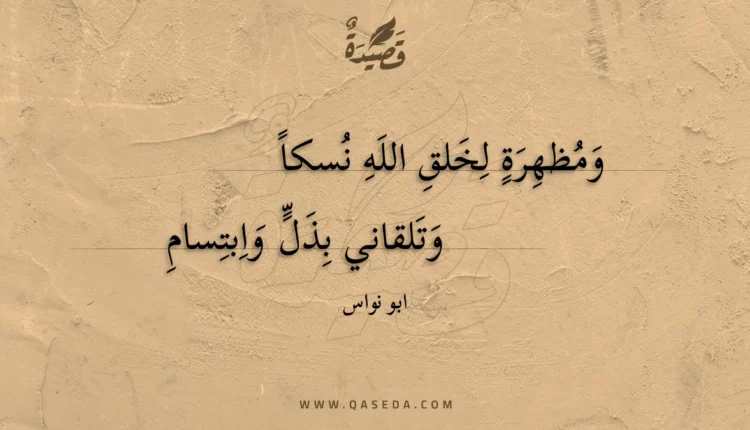 قَصِيْدَةٌ
وَمُظهِرَةٍ لِخَلقِ اللَهِ نُسكاً
وَتَلقاني بِذَلٍّ وَاِبتِسامِ
ابو نواس
WWW.QASEDA.COM